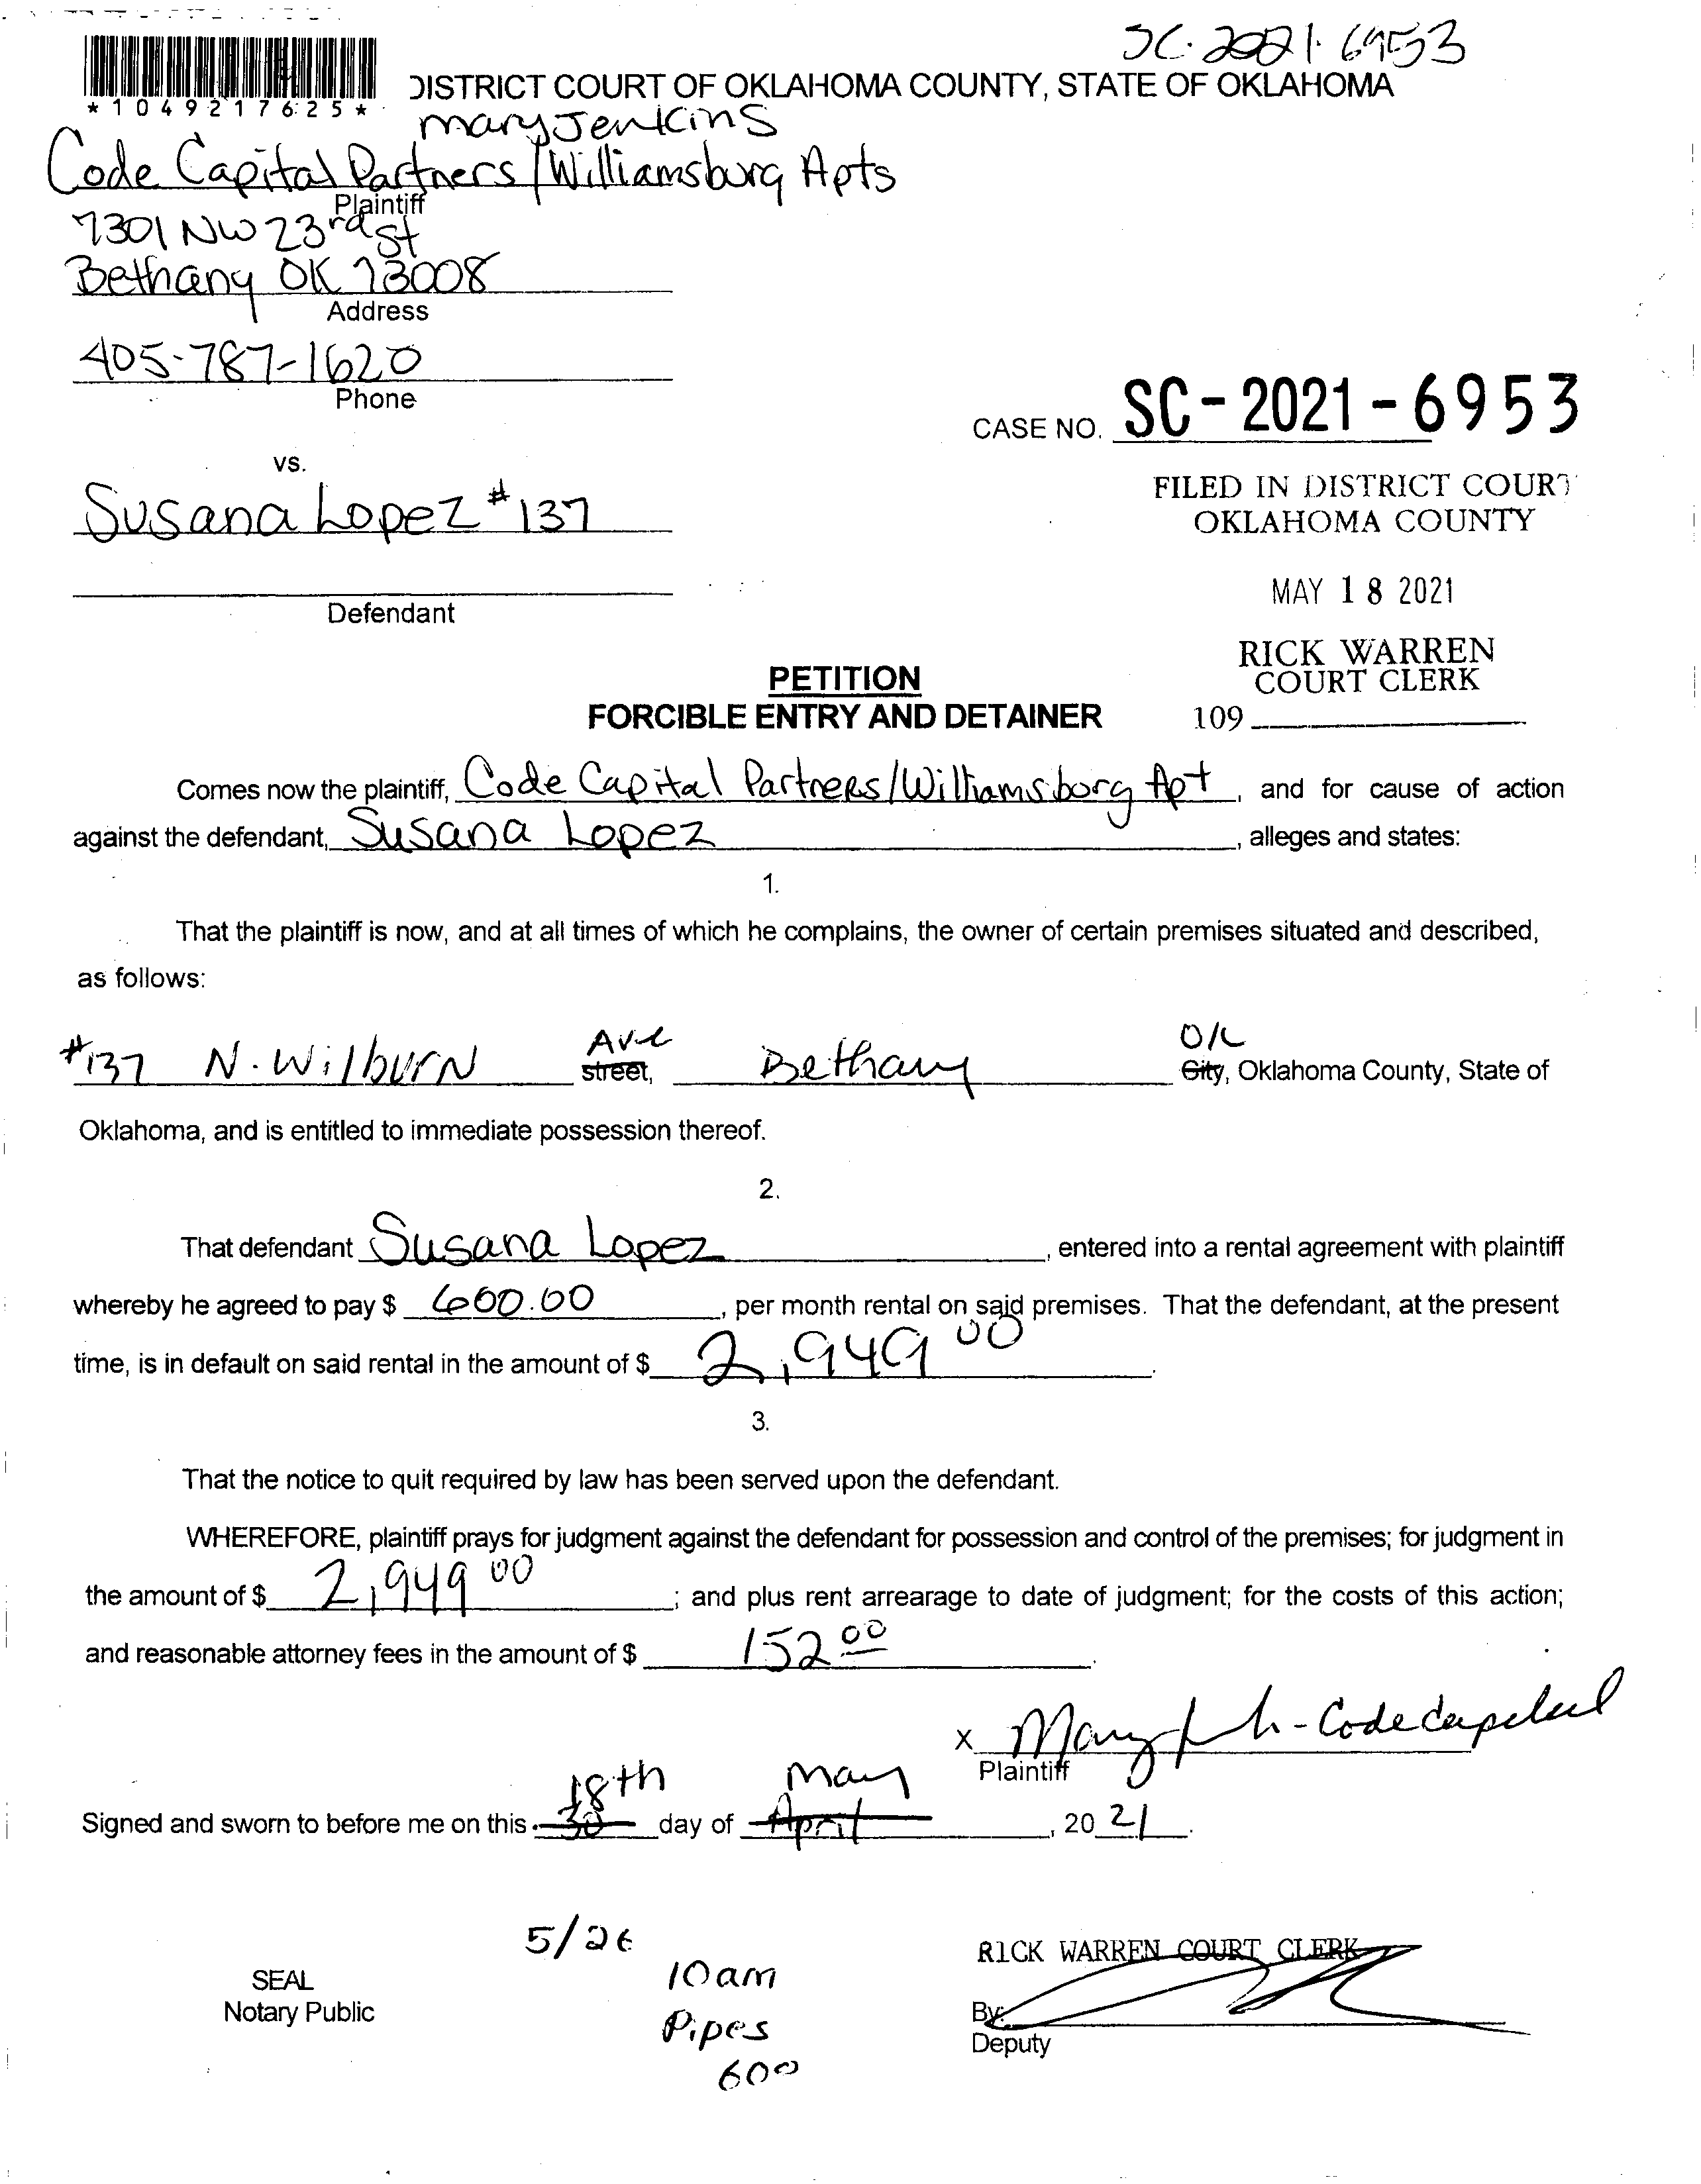 SC-2021-6953
*1049217625*
DISTRICT COURT OF OKLAHOMA COUNTY, STATE OF OKLAHOMA
Mary Jenkins
Code Capital Partners/Williamsburg Apts
Plaintiff
7301 NW 23rd St
Bethany OK 73008
Address
405-787-1620
Phone
CASE NO. SC-2021-6953
vs.
Susana Lopez #137
Defendant
FILED IN DISTRICT COURT
OKLAHOMA COUNTY
MAY 18 2021
RICK WARREN
COURT CLERK
109
PETITION
FORCIBLE ENTRY AND DETAINER
Comes now the plaintiff, Code Capital Partners/Williamsborg Apt, and for cause of action
against the defendant, Susana Lopez, alleges and states:
1.
That the plaintiff is now, and at all times of which he complains, the owner of certain premises situated and described,
as follows:
Ave OK
#137 N. Wilburn street, Bethany City, Oklahoma County, State of
Oklahoma, and is entitled to immediate possession thereof.
2.
That defendant Susana Lopez, entered into a rental agreement with plaintiff
whereby he agreed to pay $ 600.00, per month rental on said premises. That the defendant, at the present
time, is in default on said rental in the amount of $ 2,949 00.
3.
That the notice to quit required by law has been served upon the defendant.
WHEREFORE, plaintiff prays for judgment against the defendant for possession and control of the premises; for judgment in
the amount of $ 2,949 00; and plus rent arrearage to date of judgment; for the costs of this action;
and reasonable attorney fees in the amount of $ 152 00.
x Mary - Code Capital
Plaintiff
18th May
Signed and sworn to before me on this 30 day of April, 20 21.
5/26
10am
Pipes
600
SEAL
Notary Public
RICK WARREN COURT CLERK
By:
Deputy